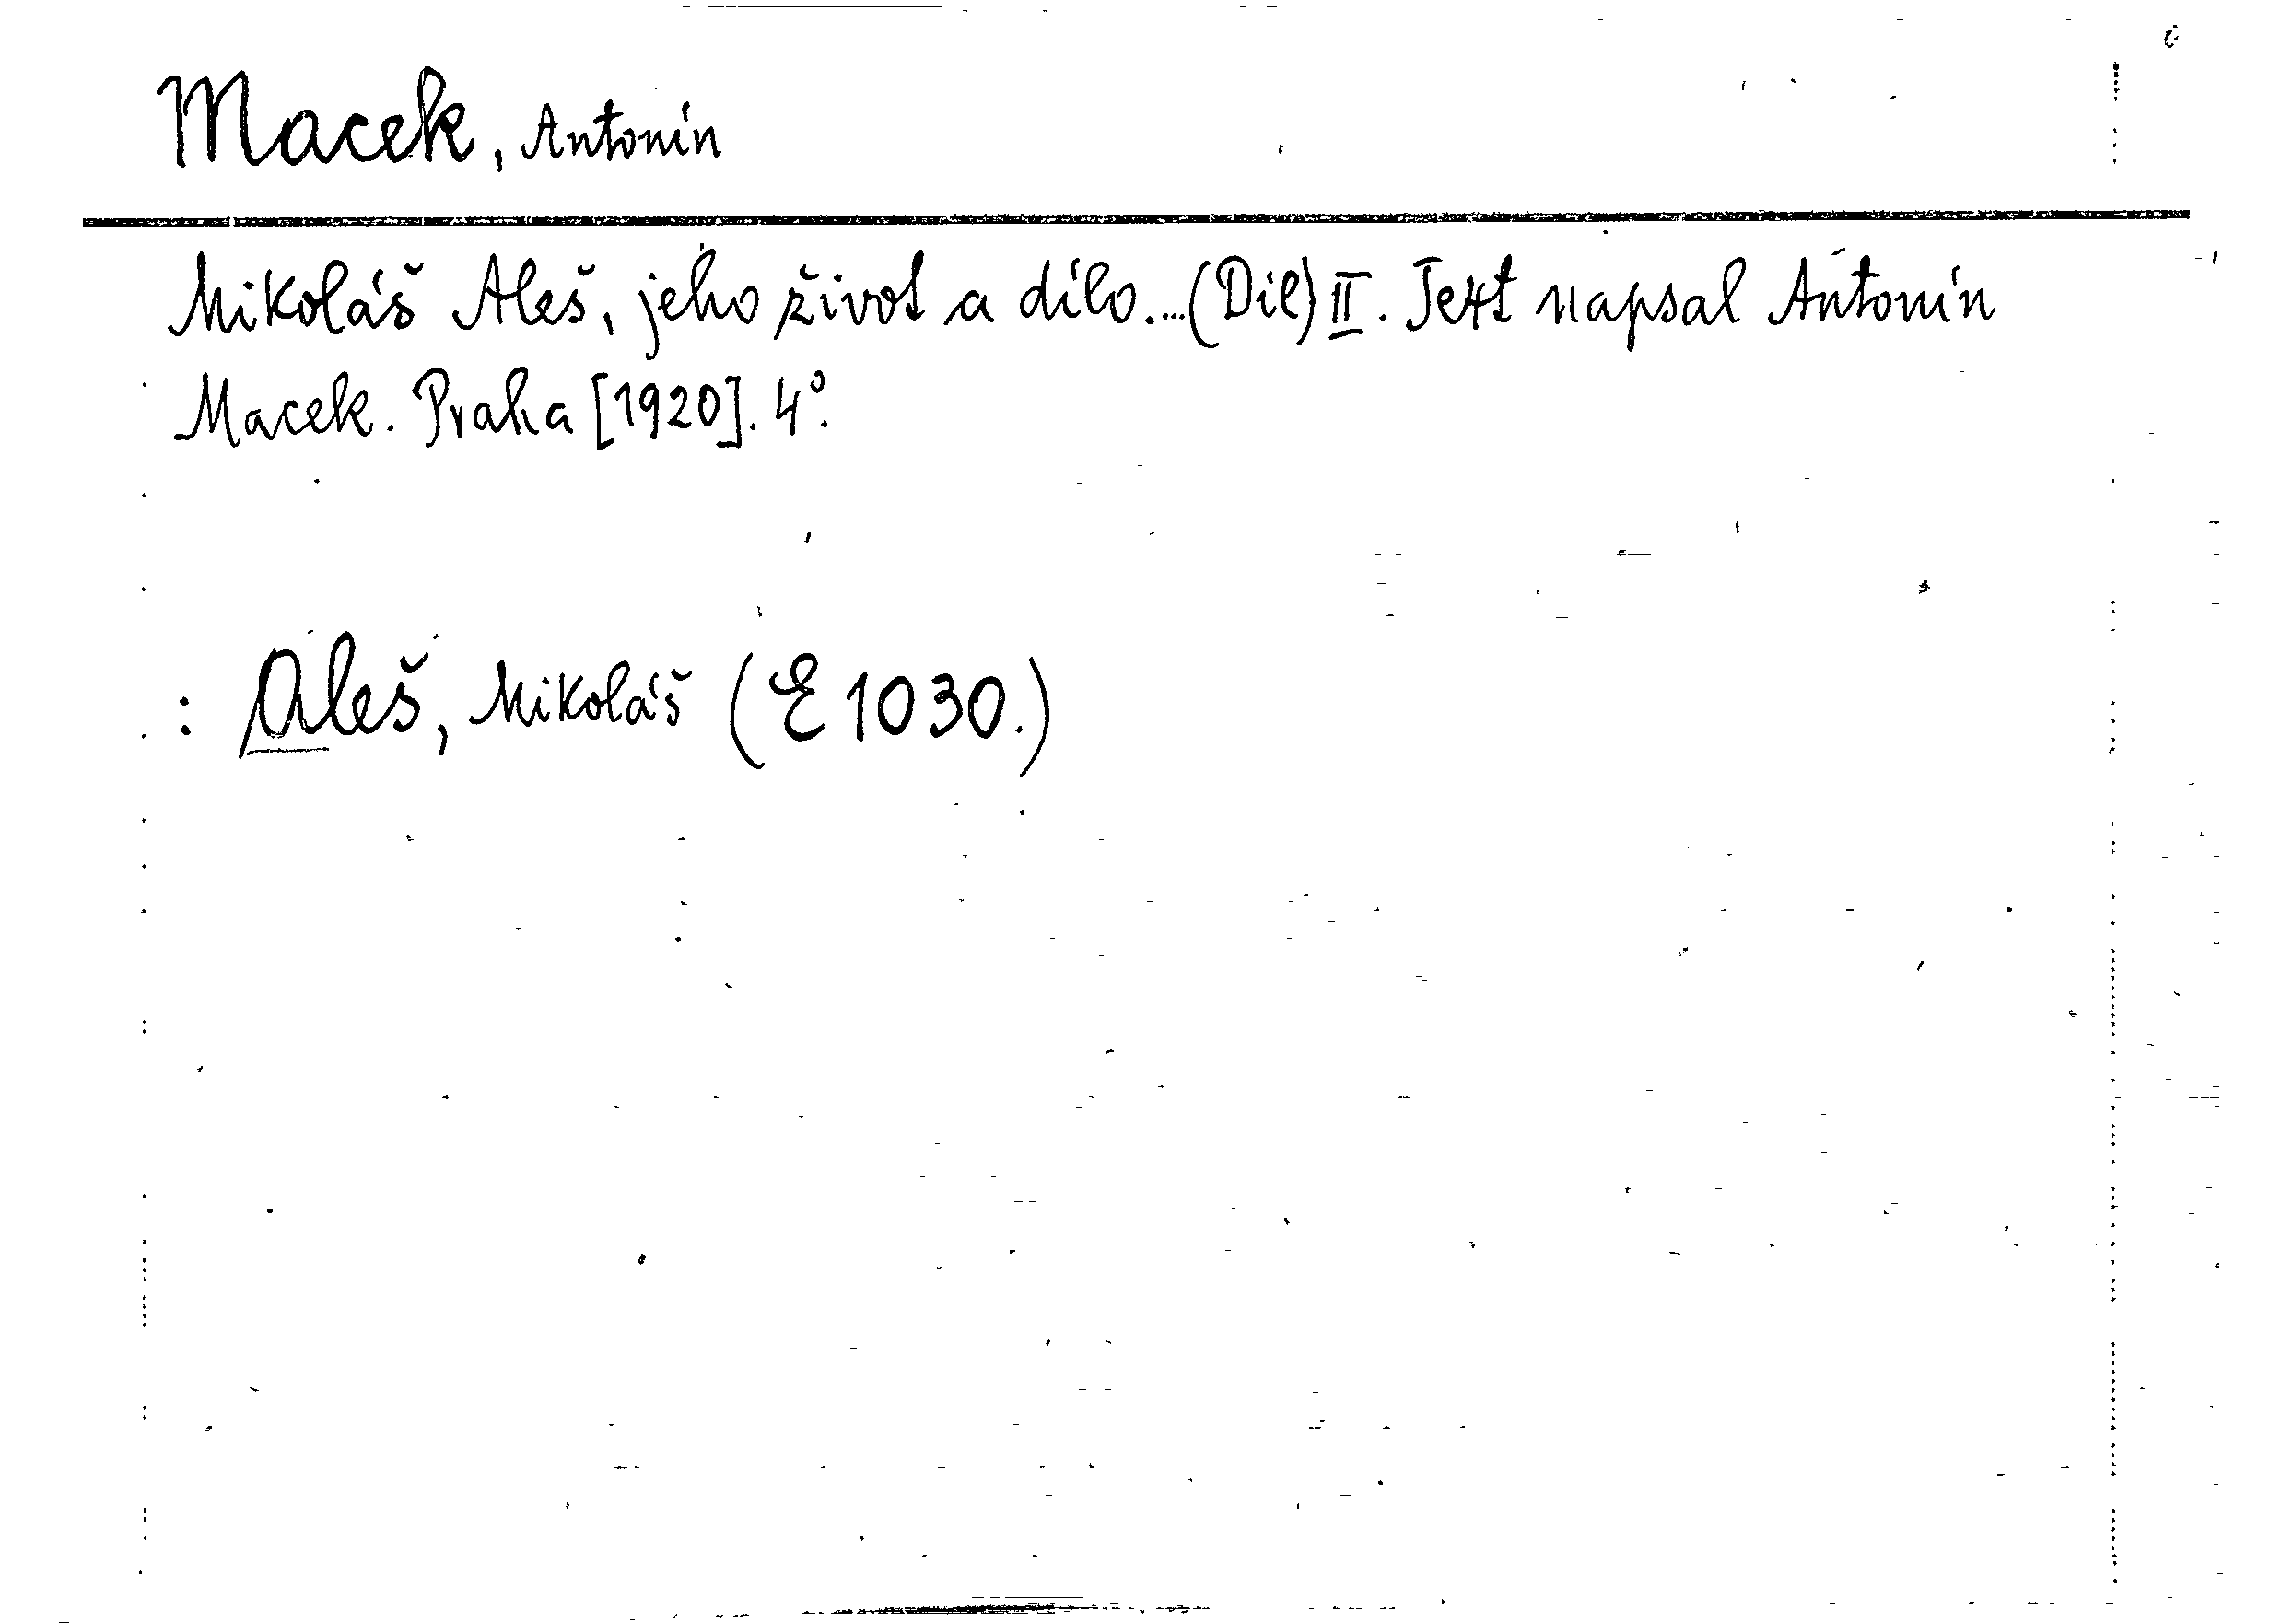 Macek, Antonín
Mikoláš Aleš, jeho život a dílo....(Díl) II. Text napsal Antonín
Macek. Praha [1920]. 4°.
: Aleš, Mikoláš (E 1030.)